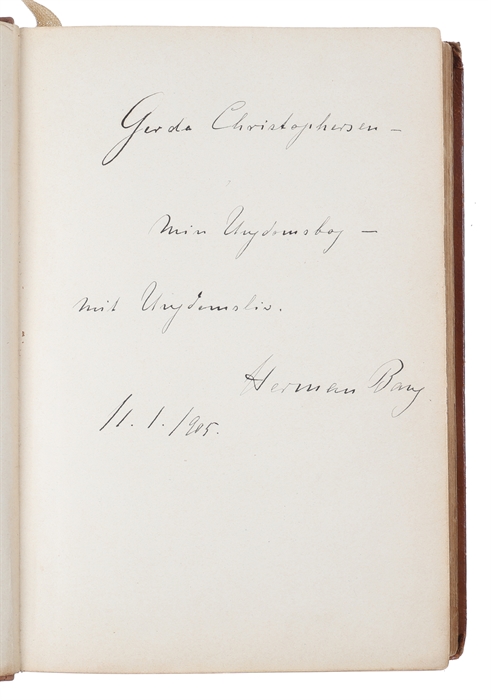 Gerda Christophersen —
Min Ungdomsbog —
mit Ungdomsliv.
Herman Bang
11. 1. 1905.